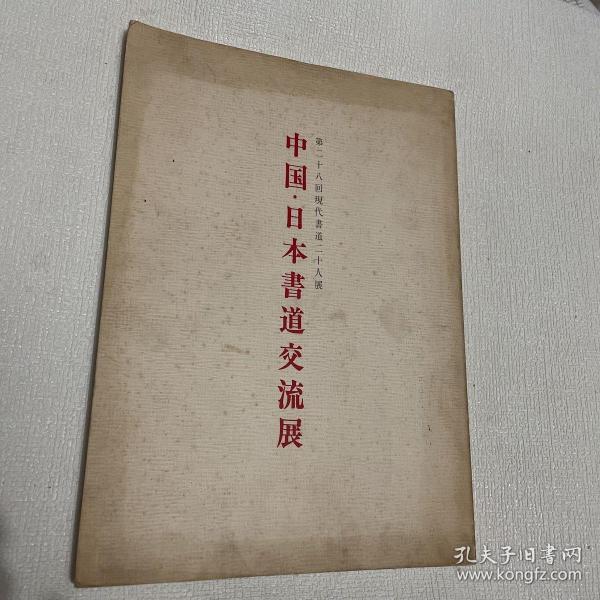 第二十八回現代書道二十人展
中国・日本書道交流展
孔夫子旧书网
www.kongfz.com